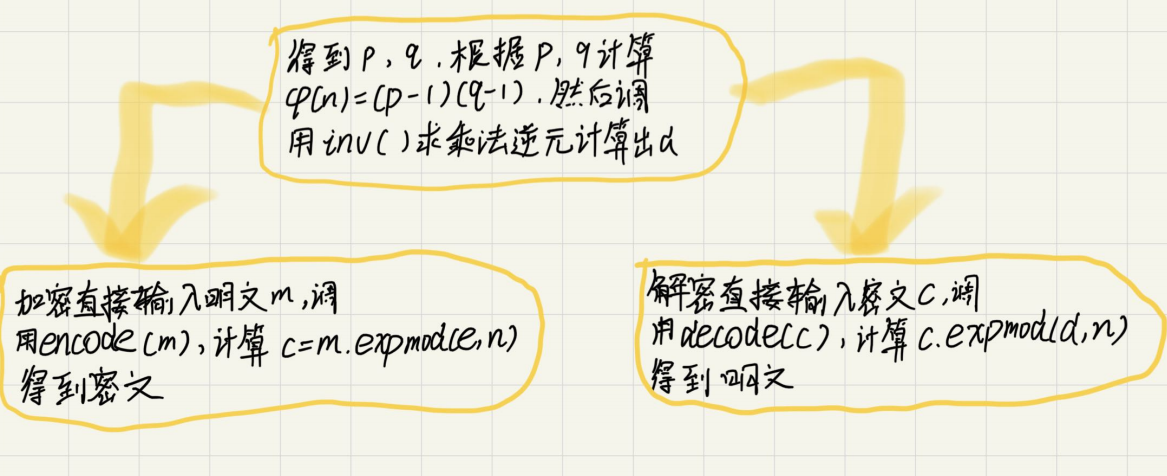 得到p,q.根据p,q计算
φ(n)=(p-1)(q-1).然后调
用inv()求乘法逆元计算出d
加密直接输入明文m,调
用encode(m),计算 c=m.expmod(e,n)
得到密文
解密直接输入密文c,调
用decode(c),计算c.expmod(d,n)
得到明文